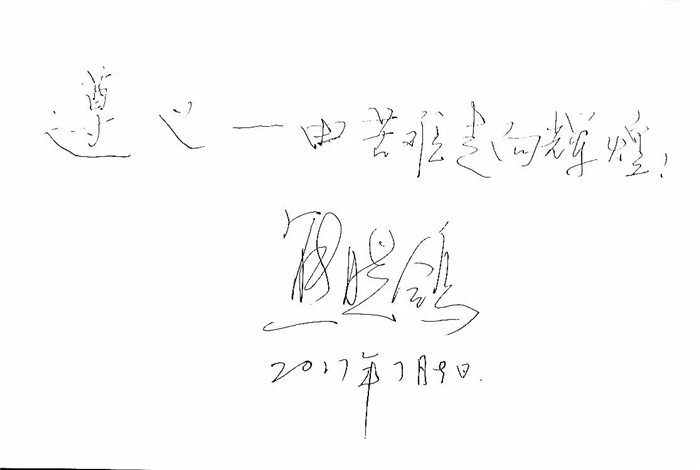 遵义—由苦难走向辉煌!
熊晓鸽
2017年7月9日.